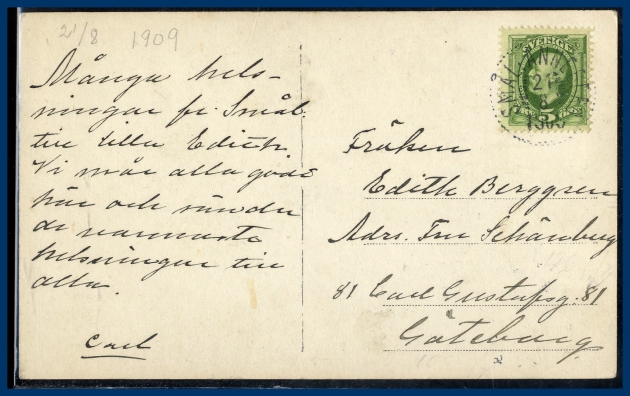 21/8 1909
Många hels-
ningar fr. Små-
till lilla Edith.
Vi mår alla godt
här och sända
de varmaste
helsningar till
alla.
Carl
SVERIGE
21
8
1909
5
Fröken
Edith Berggren
Adrs. Fru Schönberg
81 Carl Gustafsg. 81
Göteborg